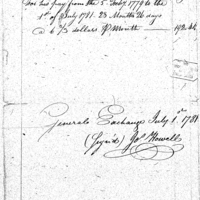 for his pay from the 5 Feby 1779 to the
1st of July 1781. 23 Months 26 days
@ 6 2/3 dollars P Month
Generals Exchange July 1st 1781
(Signd) Jos Howell